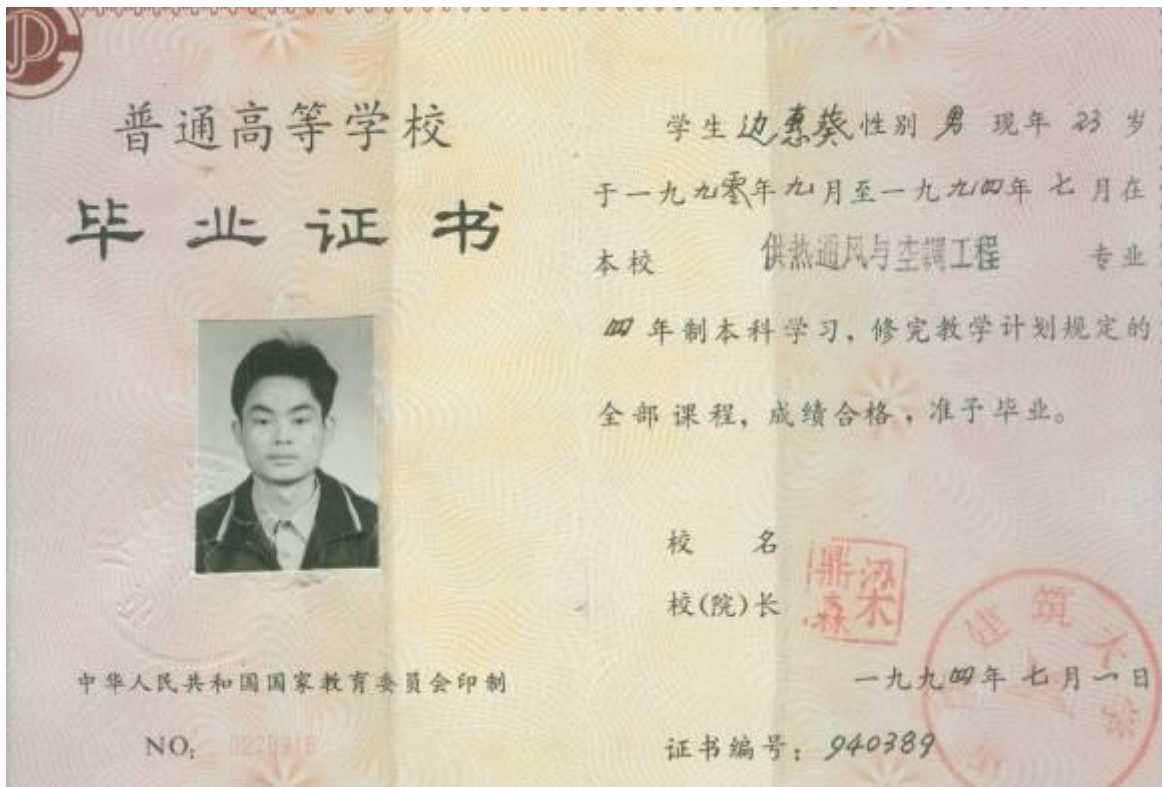 普通高等学校
毕业证书
中华人民共和国国家教育委员会印制
NO:
学生边惠葵性别 男 现年 23 岁
于一九九零年九月至一九九四年七月在
本校 供热通风与空調工程 专业
四年制本科学习，修完教学计划规定的
全部课程，成绩合格，准予毕业。
校 名
校(院)长 梁鼎森
一九九四年七月一日
证书编号：940389
建筑大学